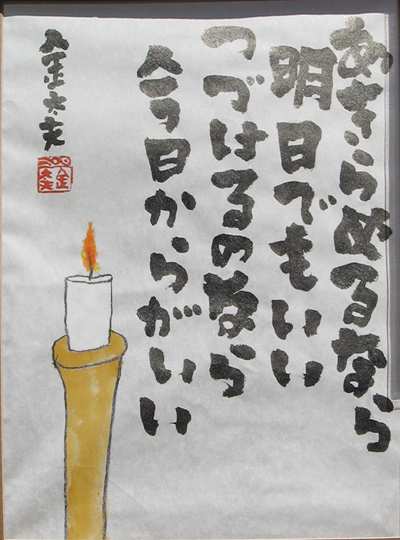 あきらめるなら
明日でもいい
つづけるのなら
今日からがいい
金太夫